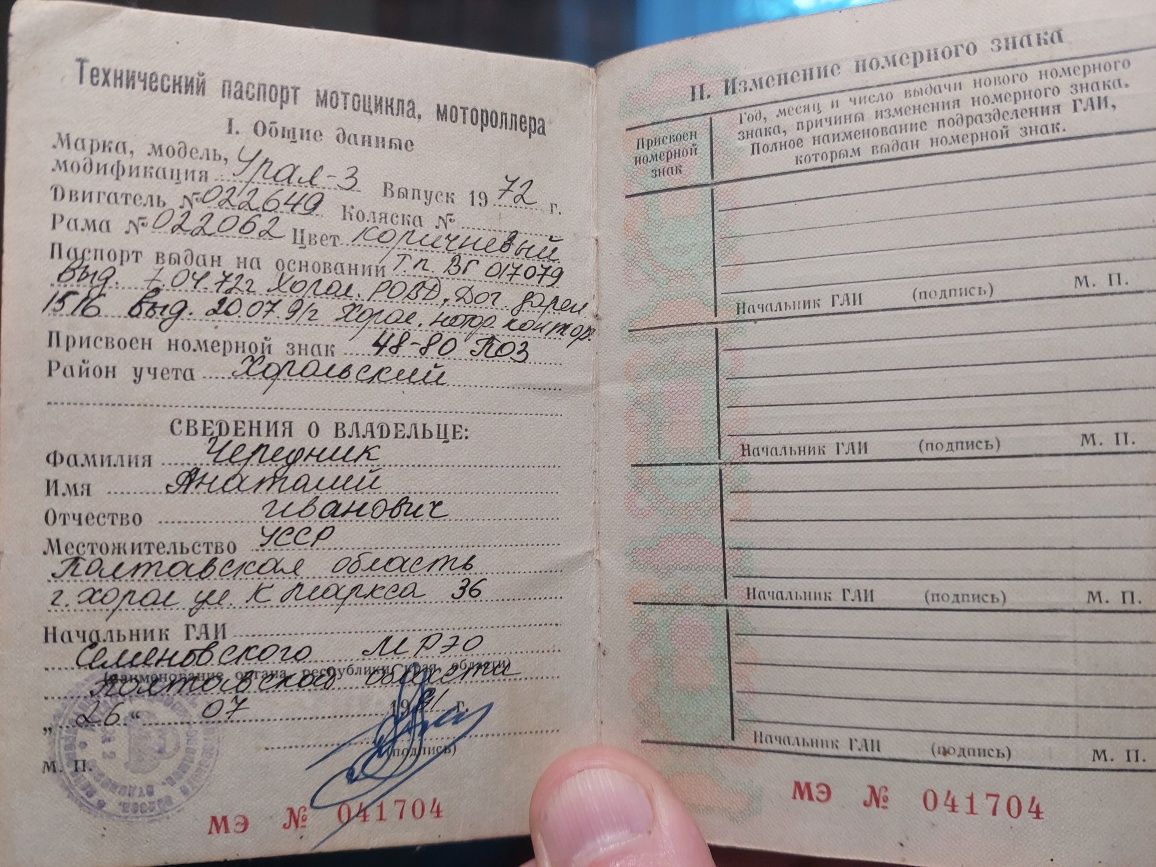 Технический паспорт мотоцикла, мотороллера
I. Общие данные
Марка, модель,
модификация Урал-3 Выпуск 1972 г.
Двигатель № 022649 Коляска №
Рама № 022062 Цвет коричневый
Паспорт выдан на основании Т.п. ВГ 017079
выд. 7.04.72г Хорол. РОВД, Дог. дарен
1516 выд. 20.07.91г Хорол. нотар контор.
Присвоен номерной знак 48-80 ПОЗ
Район учета Хорольский
СВЕДЕНИЯ О ВЛАДЕЛЬЦЕ:
Фамилия Чередник
Имя Анатолий
Отчество Иванович
Местожительство УССР
Полтавская область
г. Хорол ул. К Маркса 36
Начальник ГАИ
Семеновского МРЭО
(наименование органа, республики, края, области)
Полтавской области
„ 26 “ 07 1991 г.
(подпись)
М. П.
МЭ № 041704
II. Изменение номерного знака
Присвоен
номерной
знак
Год, месяц и число выдачи нового номерного
знака, причины изменения номерного знака.
Полное наименование подразделения ГАИ,
которым выдан номерной знак.
Начальник ГАИ (подпись) М. П.
Начальник ГАИ (подпись) М. П.
Начальник ГАИ (подпись) М. П.
Начальник ГАИ (подпись) М. П.
МЭ № 041704